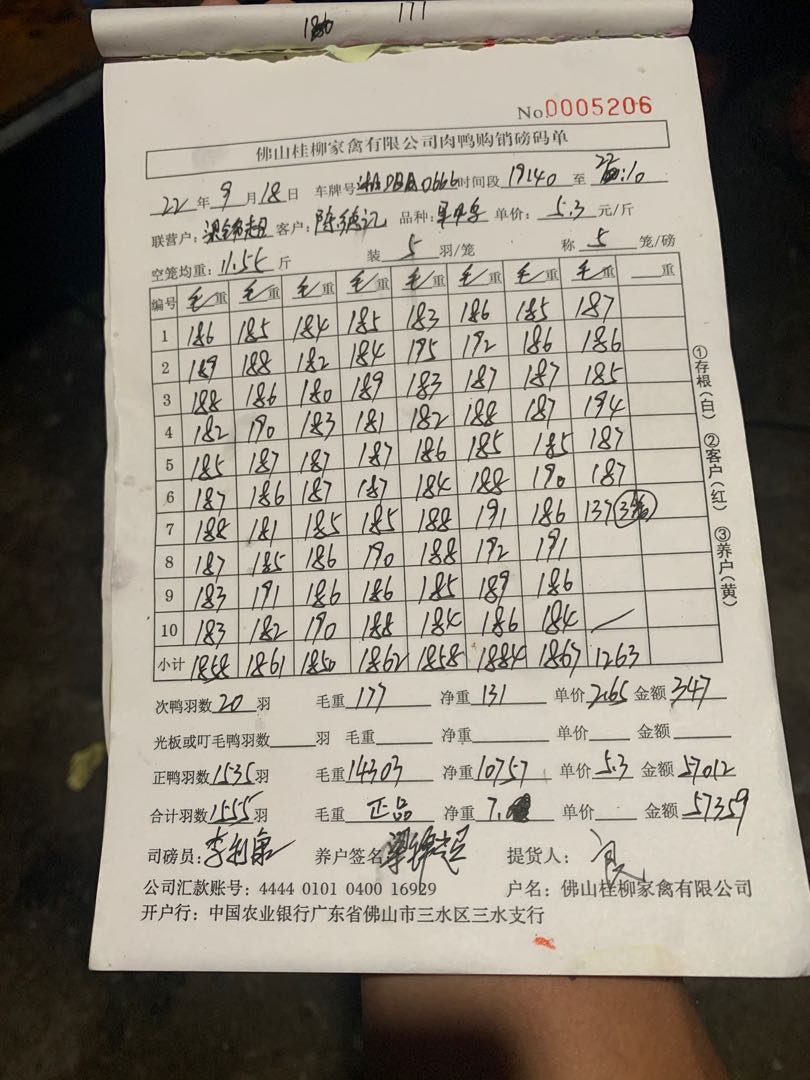 180 177
No.0005206
佛山桂柳家禽有限公司肉鸭购销磅码单
22年9月18日 车牌号 0666 时间段 19:40 至 22:10
联营户: 梁锦超 客户: 陈德记 品种: 单价: 5.3 元/斤
空笼均重: 11.55 斤 装 5 羽/笼 称 5 笼/磅
编号 毛重 毛重 毛重 毛重 毛重 毛重 毛重 毛重 重
1 186 185 184 185 183 186 185 187
2 189 188 182 184 195 192 186 186
3 188 186 180 189 183 187 187 185
4 182 190 183 181 182 188 187 194
5 185 187 187 187 186 185 185 187
6 187 186 187 187 184 188 190 187
7 188 181 185 185 188 191 186 137
8 187 185 186 190 188 192 191
9 183 191 186 186 185 189 186
10 183 182 190 188 184 186 184 /
小计 1858 1861 1850 1862 1858 1884 1867 1263
次鸭羽数 20 羽 毛重 177 净重 131 单价 2.65 金额 347
光板或叮毛鸭羽数 羽 毛重 净重 单价 金额
正鸭羽数 1535 羽 毛重 14303 净重 10757 单价 5.3 金额 57012
合计羽数 1555 羽 毛重 正品 净重 7. 单价 金额 57359
司磅员: 李利康 养户签名 梁锦超 提货人:
公司汇款账号: 4444 0101 0400 16929 户名: 佛山桂柳家禽有限公司
开户行: 中国农业银行广东省佛山市三水区三水支行
①存根(白) ②客户(红) ③养户(黄)